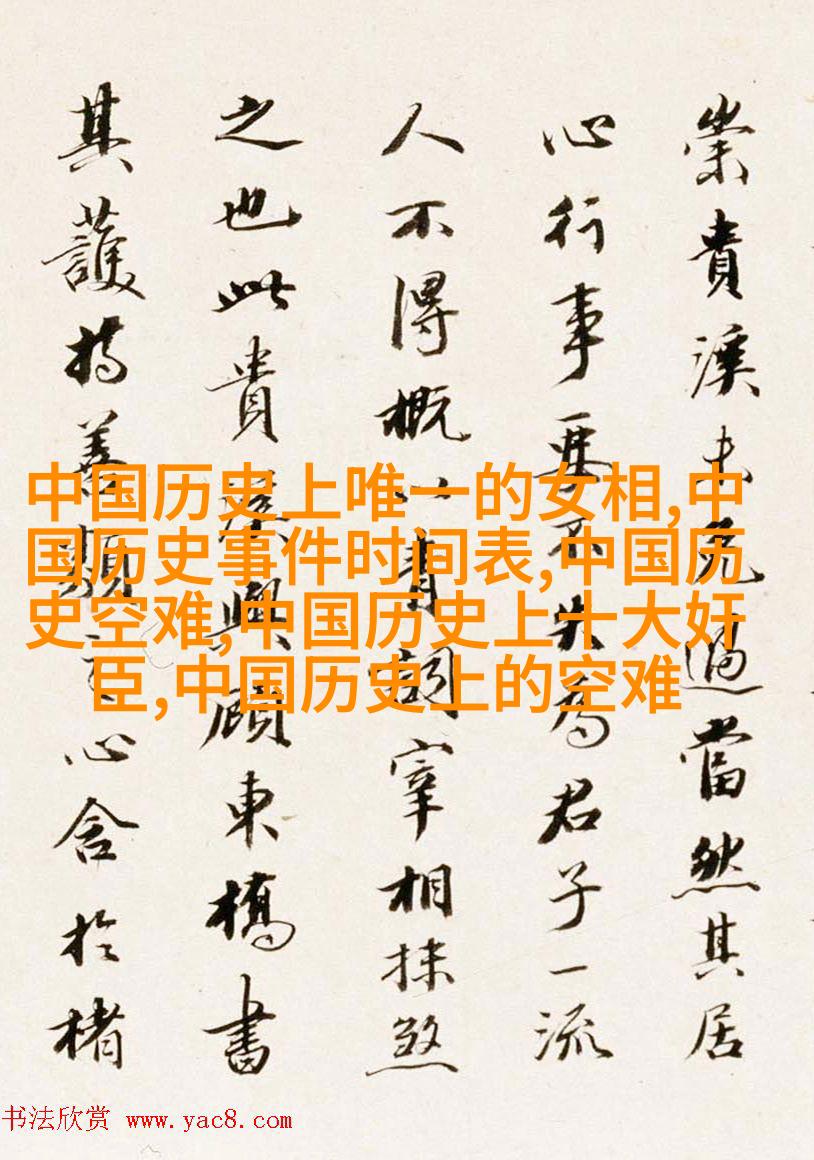 崇貴溪未免過當然其居
心行事要不失為君子一流
人不得概以青詞宰相抹煞
之也此貴溪與顧東橋書
其護持善類之心含於楮
中国历史上唯一的女相,中
国历史事件时间表,中国历
史空难,中国历史上十大奸
臣,中国历史上的空难
书法欣赏 www.yac8.com